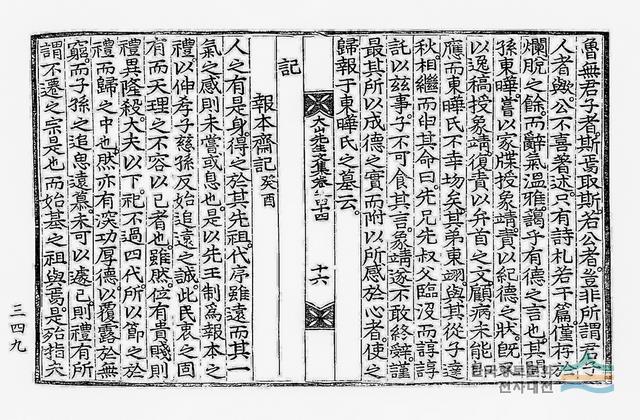 魯無君子者斯焉取斯若公者豈非所謂君子
人者歟公不喜著述只有詩札若干篇僅存於
爛脫之餘而辭氣溫雅謁乎有德之言也其門
孫東曄嘗以家牒授象靖責以紀德之狀旣
以逸稿授象靖復責以弁首之文顧病未能
應而東曄氏不幸歿矣其弟東翊與其從子達
秋相繼而申其命曰先兄先叔父臨沒而諄諄
託以玆事子不可食其言象靖遂不敢終辭謹
最其所以成德之實而附以所感於心者使之
歸報于東曄氏之墓云
大山先生文集卷之四十四 十六
記
報本齋記 癸酉
人之有是身得之於其先祖代序雖遠而其一
氣之感則未嘗或息也是以先王制爲報本之
禮以伸孝子慈孫反始追遠之誠此民衷之固
有而天理之不容以已者也雖然位有貴賤則
禮異隆殺大夫以下祀不過四代所以節之於
禮而歸之中也然亦有突功厚德以覆露於無
窮而子孫之追思遠慕未可以遽已則禮有所
謂不遷之宗是也而始基之祖與焉是殆指夫
三四九
전사대전